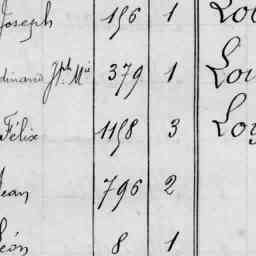 Joseph 156 1 Lo
dinand Jph Mie 379 1 Lou
Félix 1158 3 Loy
Jean 796 2
Léon 8 1